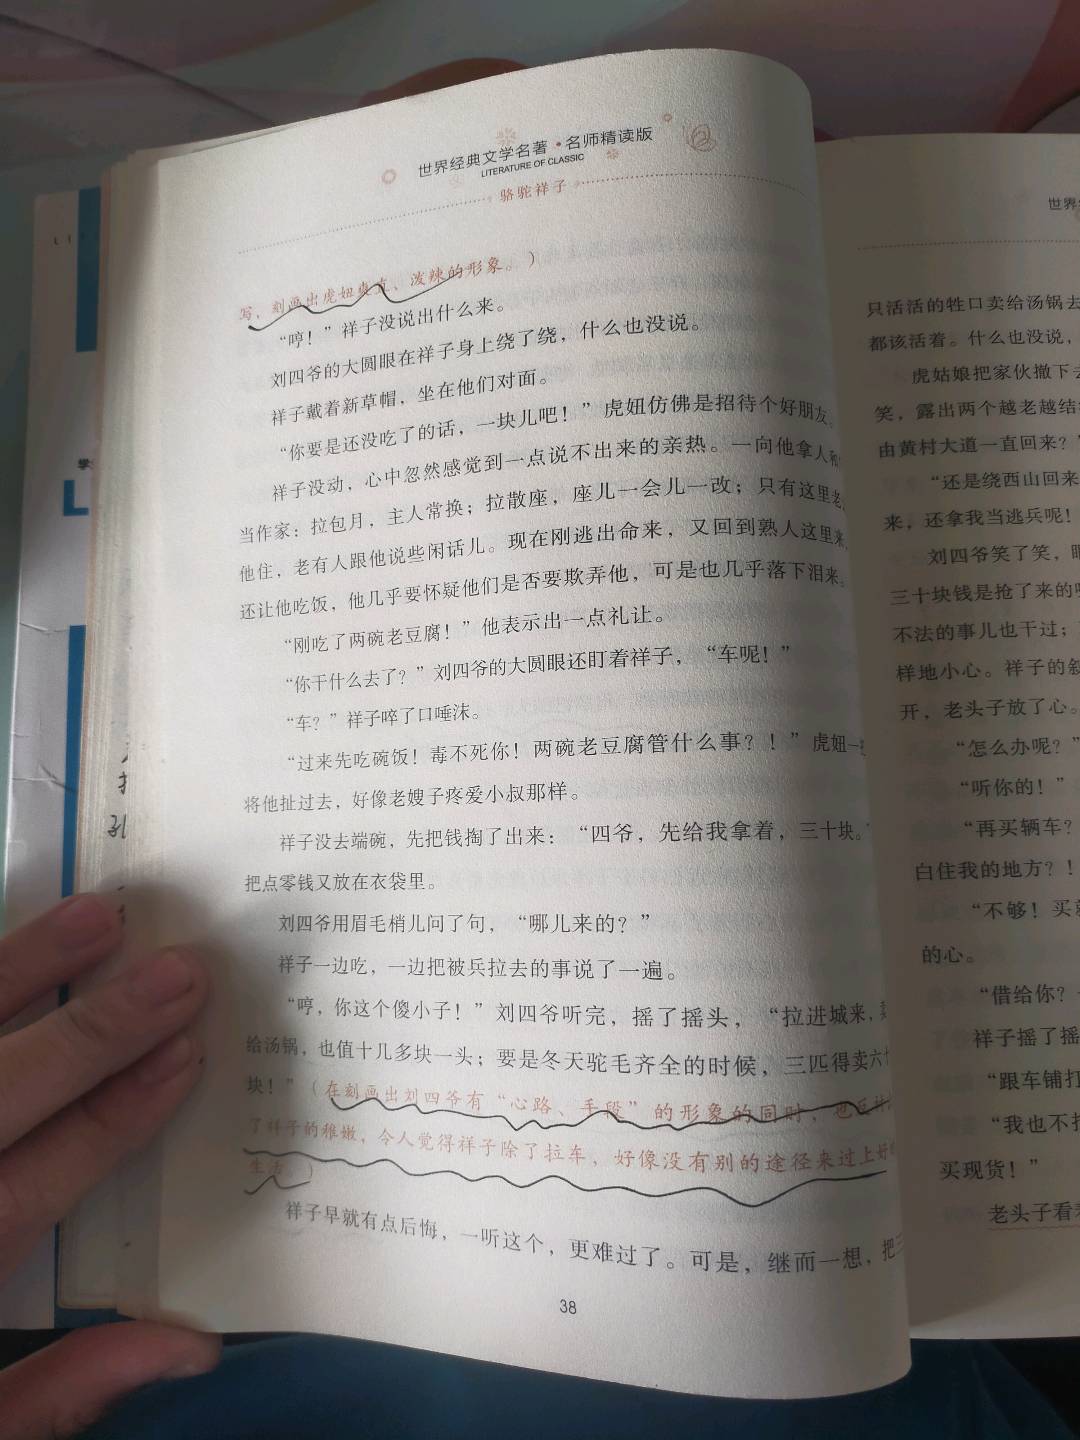 世界经典文学名著·名师精读版
LITERATURE OF CLASSIC
骆驼祥子
写，刻画出虎妞爽直、泼辣的形象。）
“哼！”祥子没说出什么来。
刘四爷的大圆眼在祥子身上绕了绕，什么也没说。
祥子戴着新草帽，坐在他们对面。
“你要是还没吃了的话，一块儿吧！”虎妞仿佛是招待个好朋友。
祥子没动，心中忽然感觉到一点说不出来的亲热。一向他拿人和
当作家：拉包月，主人常换；拉散座，座儿一会儿一改；只有这里老
他住，老有人跟他说些闲话儿。现在刚逃出命来，又回到熟人这里来，
还让他吃饭，他几乎要怀疑他们是否要欺弄他，可是也几乎落下泪来。
“刚吃了两碗老豆腐！”他表示出一点礼让。
“你干什么去了？”刘四爷的大圆眼还盯着祥子，“车呢！”
“车？”祥子啐了口唾沫。
“过来先吃碗饭！毒不死你！两碗老豆腐管什么事？！”虎妞一
将他扯过去，好像老嫂子疼爱小叔那样。
祥子没去端碗，先把钱掏了出来：“四爷，先给我拿着，三十块。”
把点零钱又放在衣袋里。
刘四爷用眉毛梢儿问了句，“哪儿来的？”
祥子一边吃，一边把被兵拉去的事说了一遍。
“哼，你这个傻小子！”刘四爷听完，摇了摇头，“拉进城来，
给汤锅，也值十几多块一头；要是冬天驼毛齐全的时候，三匹得卖六
块！”（在刻画出刘四爷有“心路、手段”的形象的同时，也
了祥子的稚嫩，令人觉得祥子除了拉车，好像没有别的途径来过上好
生活。）
祥子早就有点后悔，一听这个，更难过了。可是，继而一想，把三
38
世界
只活活的牲口卖给汤锅去
都该活着。什么也没说，
虎姑娘把家伙撤下去
笑，露出两个越老越结
由黄村大道一直回来？”
“还是绕西山回来
来，还拿我当逃兵呢！
刘四爷笑了笑，眼
三十块钱是抢了来的
不法的事儿也干过；
样地小心。祥子的叙
开，老头子放了心。
“怎么办呢？”
“听你的！”
“再买辆车？
白住我的地方？！
“不够！买
的心。
“借给你？
祥子摇了摇
“跟车铺打
“我也不
买现货！”
老头子看